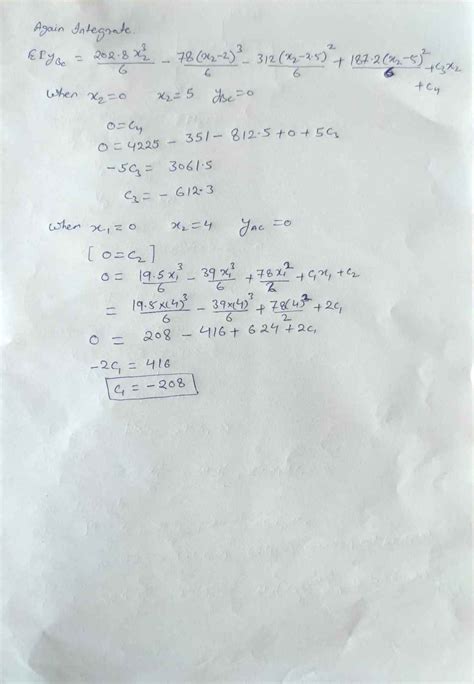 Again Integrate.
EIy_BC = 202.8 x₂³/6 - 78(x₂-2)³/6 - 312(x₂-2.5)²/6 + 187.2(x₂-5)²/6 + C₃x₂
+ C₄
When x₂=0 x₂=5 y_BC=0
0=C₄
0 = 4225 - 351 - 812.5 + 0 + 5C₃
-5C₃ = 3061.5
C₃ = - 612.3
When x₁=0 x₂=4 y_AC=0
[0=C₂]
0 = 19.5x₁³/6 - 39x₁³/6 + 78x₁²/2 + C₁x₁ + C₂
= 19.5×(4)³/6 - 39×(4)³/6 + 78(4)²/2 + 2C₁
0 = 208 - 416 + 624 + 2C₁
-2C₁ = 416
C₁ = -208